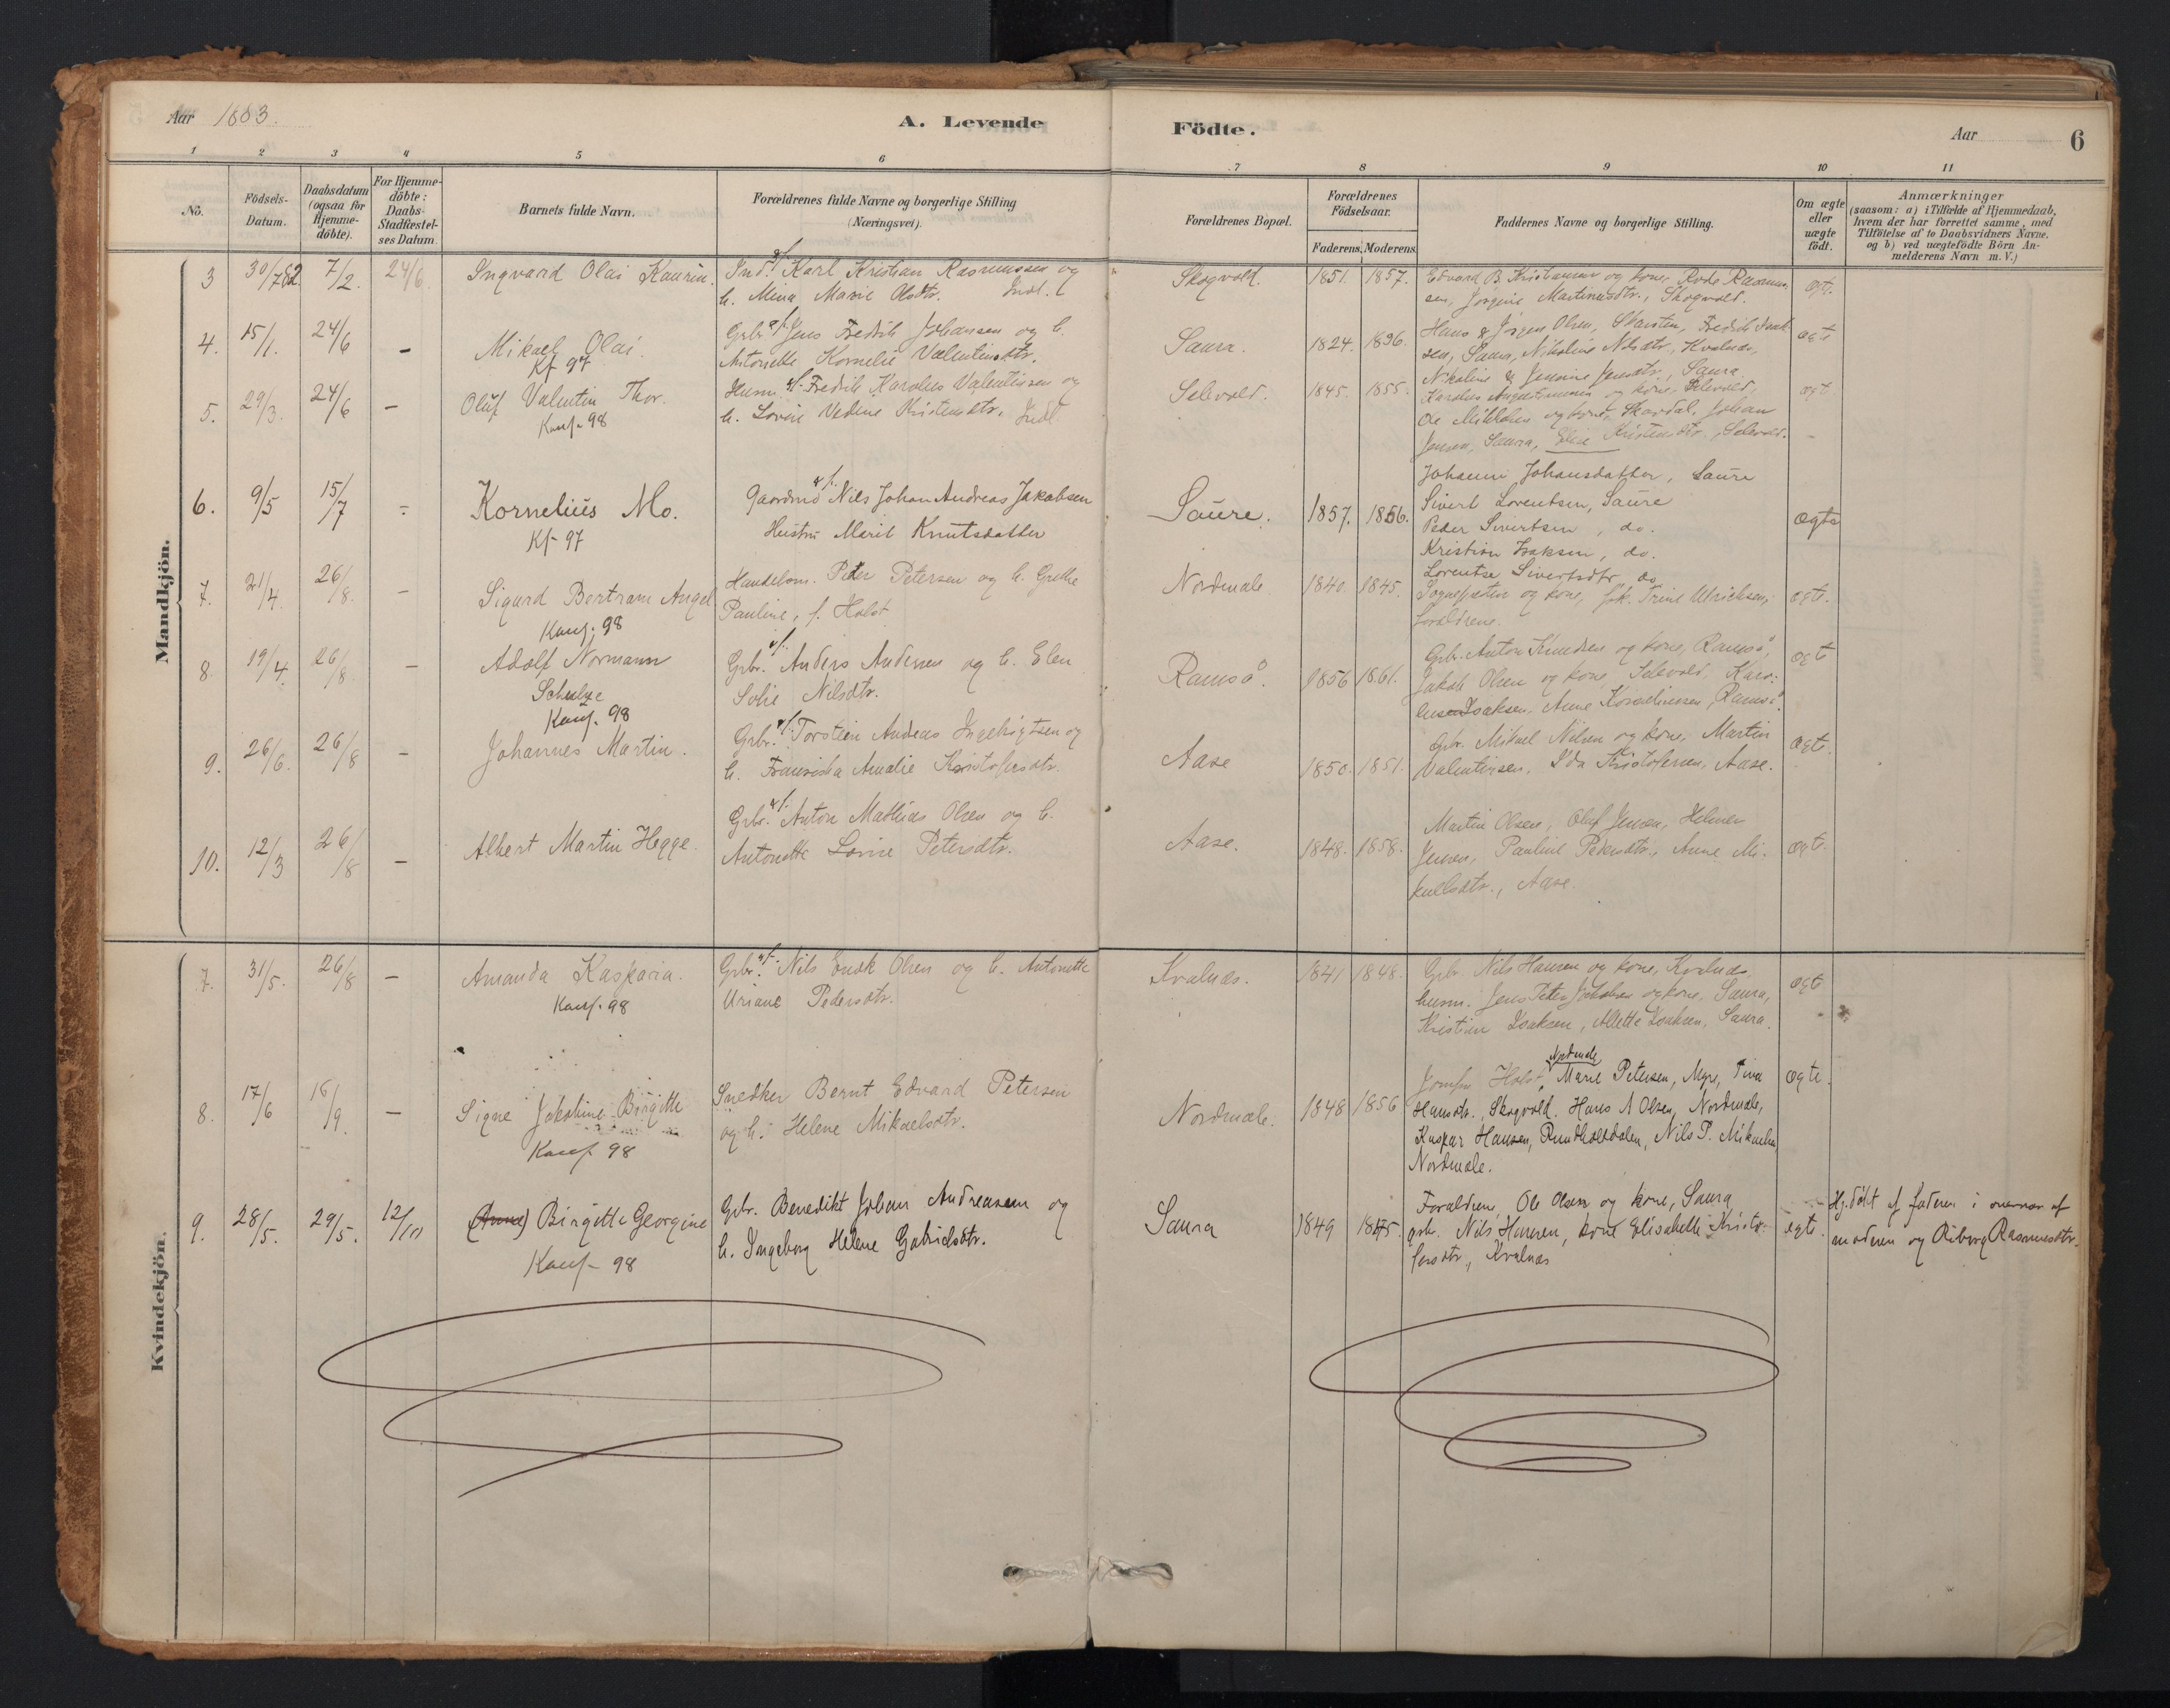 Aar 1883.
A. Levende Födte.
Aar
6
1 2 3 4 5 6 7 8 9 10 11
No.
Födsels-
Datum.
Daabsdatum
(ogsaa for
Hjemme-
döbte).
For Hjemme-
döbte:
Daabs-
Stadfæstel-
ses Datum.
Barnets fulde Navn.
Forældrenes fulde Navne og borgerlige Stilling
(Næringsvei).
Forældrenes Bopæl.
Forældrenes
Födselsaar.
Faderens. Moderens.
Faddernes Navne og borgerlige Stilling.
Om ægte
eller
uægte
födt.
Anmærkninger
(saasom: a) i Tilfælde af Hjemmedaab,
hvem der har forrettet samme, med
Tilföielse af to Daabsvidners Navne.
og b) ved uægtefödte Börn An-
melderens Navn m. V.)
Mandkjön.
3 30/7 82. 7/2. 24/6 Ingvard Olai Kaurin. Ind. Karl Kristian Rasmussen og
h. Mina Marie Olsdtr. Indl.
Skogvold. 1851. 1857. Edvard B. Kristiansen og kone,
Jörgine Martinusdtr., Skogvold. ægte.
4. 15/1. 24/6 - Mikael Olai.
Kf 97
Grbr. Jens Fredrik Johansen og h.
Antonette Kornelie Valentinsdtr.
Saura. 1824. 1836. Hans & Jörgen Olsen, Skarsten, Fredrik Isak-
sen, Saura, Nikoline Nilsdtr., Kvalnæs,
Nikoline & Jensine Jensdtr., Saura. ægte
5. 29/3. 24/6 - Oluf Valentin Thor.
Konf. 98
Husm. Fredrik Karolius Valentinsen og
h. Lovise Vedine Kristensdtr. Indl
Selvold. 1845. 1855. Karolus Augustinussen og kone, Selvold,
Ole Mikkelsen og kone, Skardal, Johan
Jensen, Saura, Elise Kristensdtr., Selvold. ægt
6. 9/5 15/7 - Kornelius Mo.
Kf 97
Gaardmd Nils Johan Andreas Jakobsen
Hustru Marit Knutsdatter
Saure. 1857. 1856. Johanna Johansdatter, Saure
Sivert Lorentsen, Saure
Peder Sivertsen, do.
Kristian Isaksen, do.
Lorentse Sivertsdtr, do. ægte
7. 21/4. 26/8. - Sigurd Bertram Angel
Konf. 98
Handelsm. Peter Petersen og h. Grethe
Pauline, f. Holst
Nordmæle 1840. 1845. Sognepresten og kone, frk. Trine Ulricksen,
foraldrene. ægte.
8. 19/4. 26/8 - Adolf Normann
Schulze
Konf. 98
Grbr. Anders Andersen og h. Elen
Sofie Nilsdtr.
Ramsö. 1856 1861. Grbr. Anton Knudsen og kone, Ramsö,
Jakob Olsen og kone, Selvold,
Isaksen, Anne Korneliussen, Ramsö. ægte
9. 26/6. 26/8 - Johannes Martin.
Grbr. Torstein Andreas Ingebrigtsen og
h. Fransiska Amalie Kristofersdtr.
Aase 1850. 1851. Grbr. Mikael Nilsen og kone, Martin
Valentinsen, Ida Kristofersen, Aase. ægte.
10. 12/3 26/8 - Albert Martin Hegge.
Grbr. Anton Mathias Olsen og h.
Antonette Lovise Petersdtr.
Aase. 1848. 1858. Martin Olsen, Oluf Jensen, Helmer
Jensen, Pauline Pedersdtr., Anne Mi-
kkelsdtr., Aase. ægte.
Kvindekjön.
7. 31/5. 26/8 - Amanda Kasparia.
Konf. 98
Grbr. Nils Enok Olsen og h. Antonette
Uriane Pedersdtr.
Kvalnæs. 1841 1848. Grbr Nils Hansen og kone, Kvalnæs,
husm. Jens Peter Jakobsen og kone, Saura,
Kristian Isaksen, Alette Isaksen, Saura. ægte
8. 17/6 16/9. - Signe Jakobine Birgitte
Konf 98
Snedker Bernt Edvard Petersen
og h. Helene Mikaelsdtr.
Nordmæle. 1848 1856 Nordmæle
Jomfru Holst, Marie Petersen, Myre, Tina
Hansdtr., Skogvold. Hans A Olsen, Nordmæle,
Kaspar Hansen, Rundholtdalen, Nils P. Mikaelsen
Nordmæle. ægte.
9. 28/5. 29/5. 12/10 (Anne) Birgitte Georgine
Konf 98
Grbr. Benedikt Johan Andreassen og
h. Ingeborg Helene Gabrielsdtr.
Saura 1849 1845. Foraldrene, Ole Olsen og kone, Saura,
grbr. Nils Hansen, kone Elisabethe Kristo-
fersdtr., Kvalnæs ægte. Hj.döbt af faderen i nærvær af
moderen og Riborg Rasmusdtr.